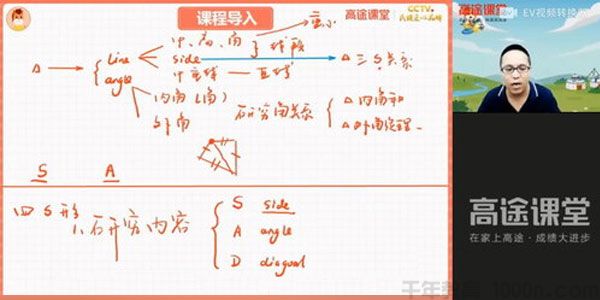 课程导入
高途课堂
CCTV
民族匠心品牌
高途课堂
EV视频转换
line
中、高、角 } 线段
side
△三S关系
angle
中垂线 — 直线
内角(角)
外角
研究角关系
△内角和
△外角定理
S A
四S形
1.研究内容
S side
A angle
D diagonal
高途课堂
在家上高途·成绩大进步
千年教育 1000n.com